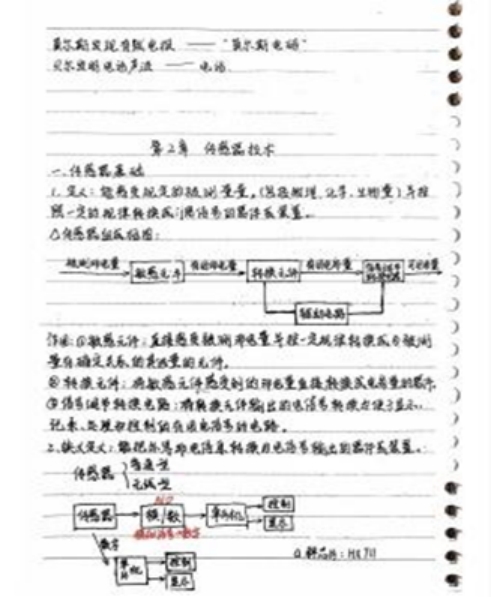 莫尔斯发现有线电报 —— “莫尔斯电码”
贝尔发明电话声波 —— 电话
第2章 传感器技术
一、传感器基础
1. 定义：能感受规定的被测量量，(包括物理、化学、生物量)并按
照一定的规律转换成可用信号的器件或装置。
△传感器组成框图：
被测非电量 敏感元件 有用非电量 转换元件 有用电量 信号调节转换电路 可用电量
辅助电路
作用：①敏感元件：直接感受被测非电量并按一定规律转换成与被测
量有确定关系的其它量的元件。
②转换元件：将敏感元件感受到的非电量直接转换成电量的器件
③信号调节转换电路：将转换元件输出的电信号转换为便于显示、
记录、处理和控制的有用电信号的电路。
2、狭义定义：能把外界非电信息转换为电信号输出的器件或装置。
传感器 有源型
无源型
A/D
传感器 模/数 单片机 控制
显示
模拟信号→数字
数字
单片机 控制
显示
a.解芯片：HX711